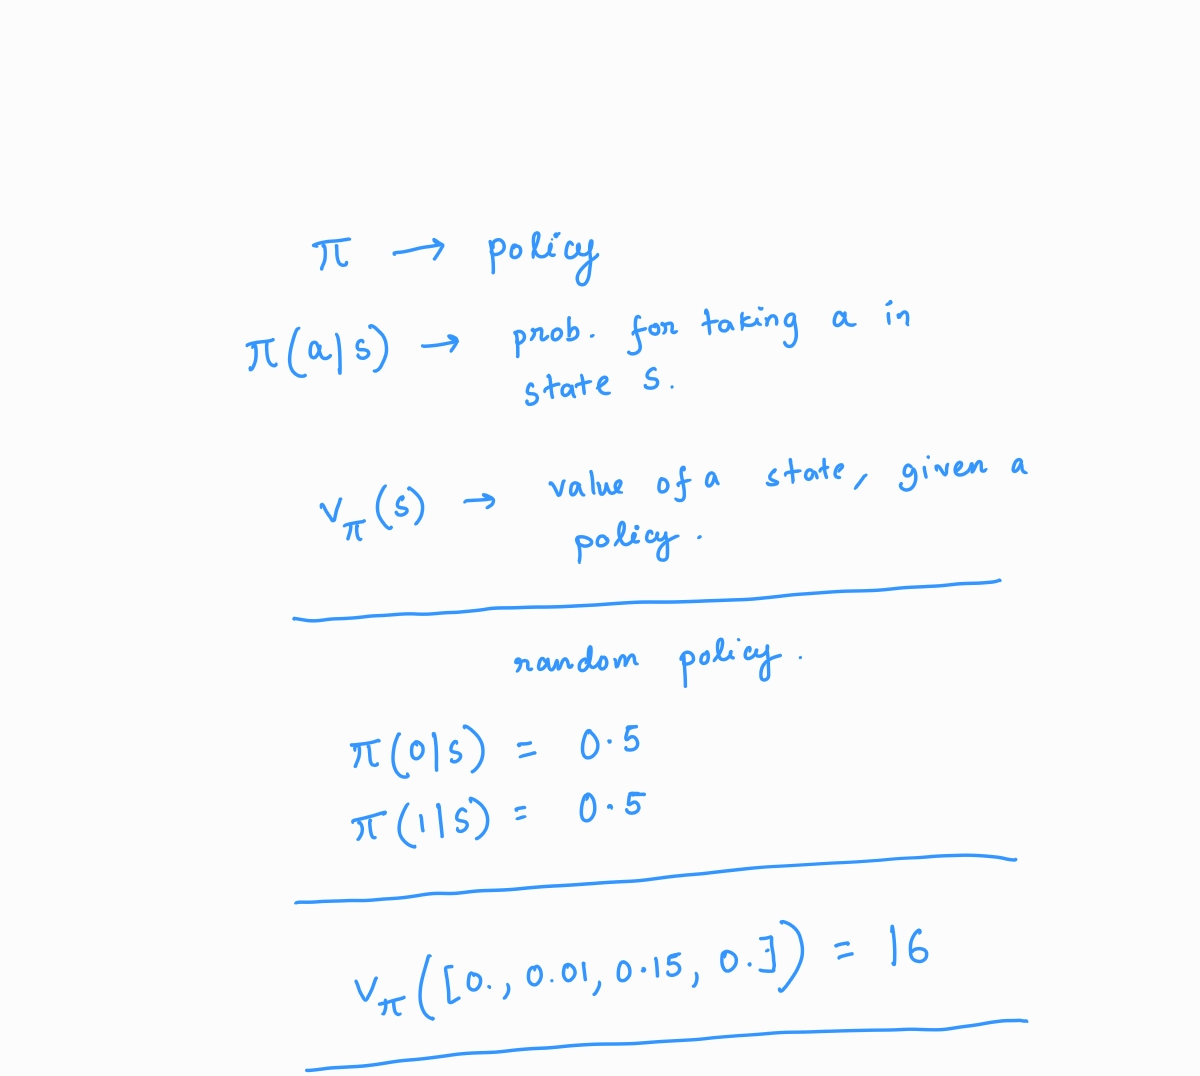 π → policy
π(a|s) → prob. for taking a in
state s.
v_π(s) → value of a state, given a
policy.
random policy.
π(0|s) = 0.5
π(1|s) = 0.5
v_π([0., 0.01, 0.15, 0.]) = 16